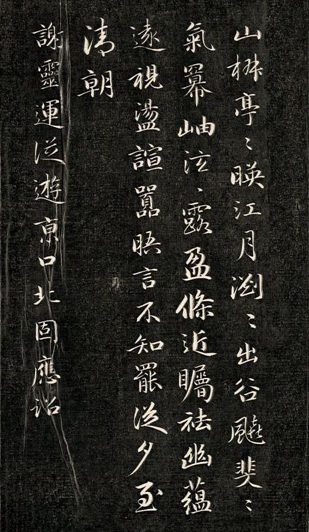 山椒亭〻暎江月瀏〻出谷飈斐〻
氣冪岫泫〻露盈條近矚袪幽蘊
遠視盪諠囂晤言不知罷從夕至
清朝
謝靈運從遊京口北固應詔